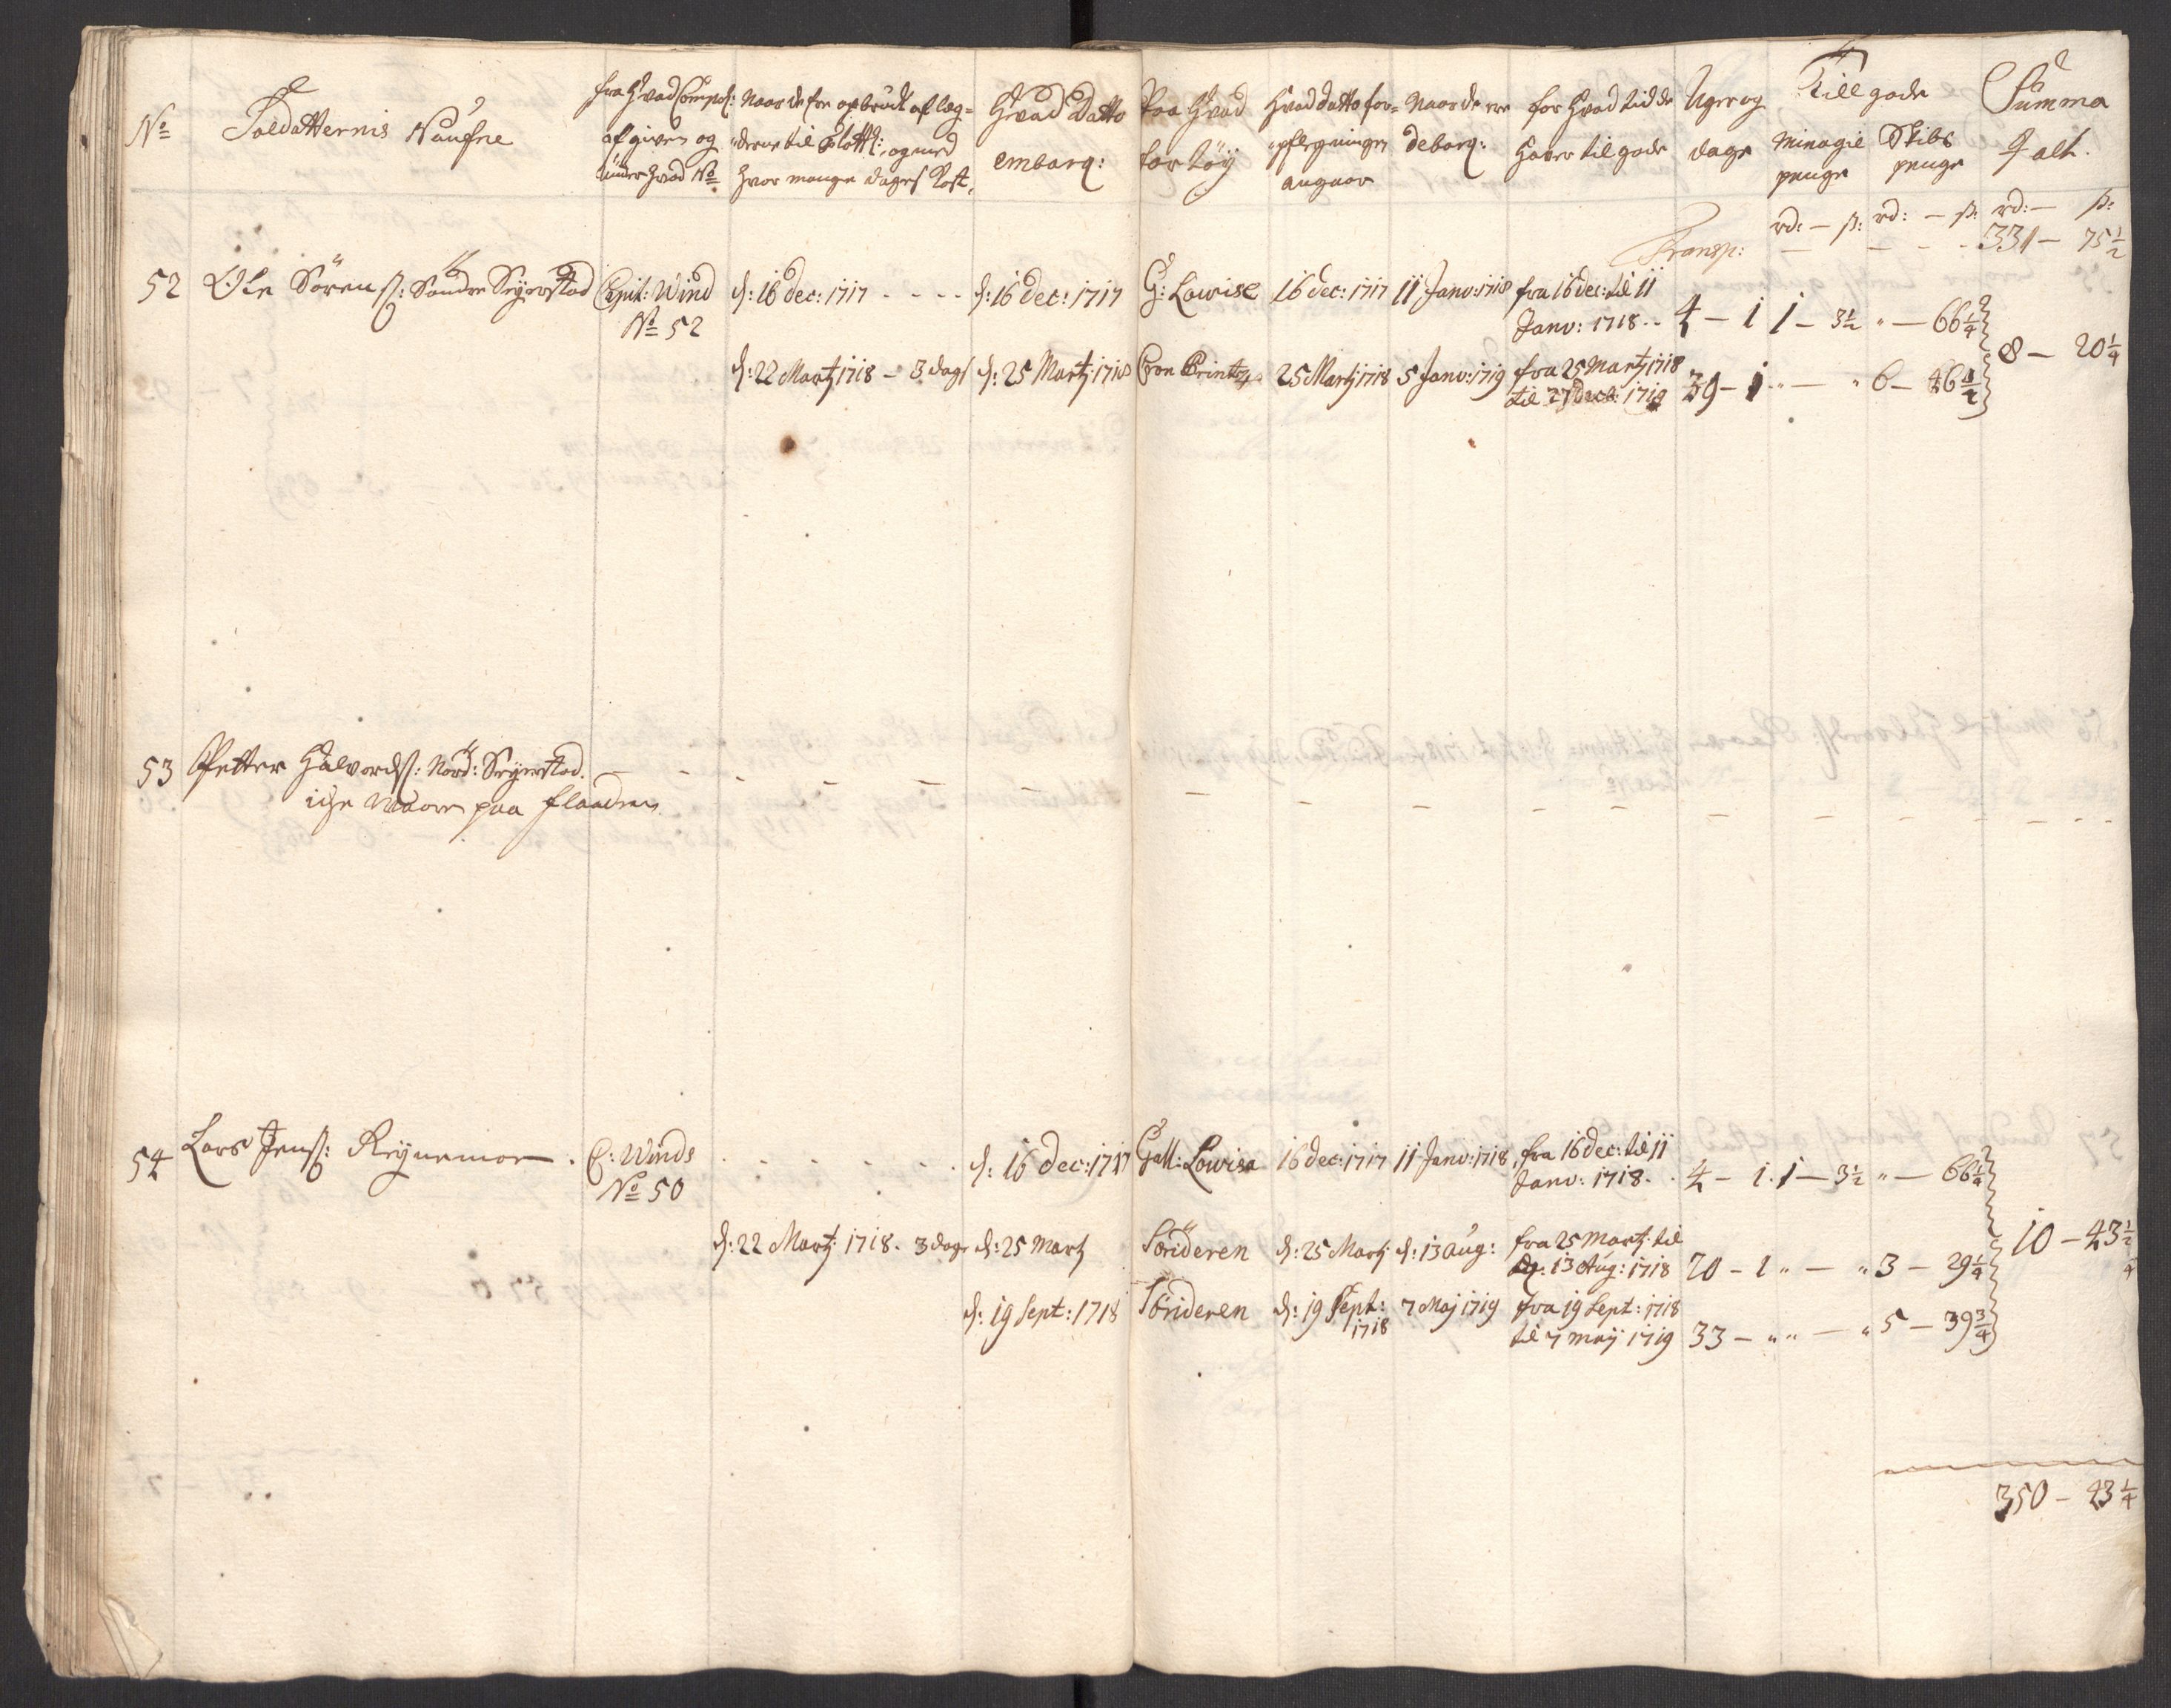 No Soldatternis Naufne
fra hvad Compa:
afgiven og
under hvad No
Naar de fre opbrudt af leg-
derne til Flotti: og med
hvor mange dages Kost,
Hvad Datto
embarq:
Paa Hvad
fartöÿ
Hvad datto for-
pflegningen
angaar
Naar de ere
debarq:
for hvad tid de
haver til gode
Uger og
dage
Till gode
Minagie
penge
Skibs
penge
Summa
J alt.
rd: — s: rd: — s: rd: — s:
Transp: — — — 331 — 75 1/2
52 Ole Sörens: Söndre Seÿerstad Capit: Wind d: 16 dec: 1717 . . . . d: 16 dec: 1717 G: Lowise 16 dec: 1717 11 Janv: 1718 fra 16 dec: til 11
No 52 Janv: 1718 . . 4 — 1 1 — 3 1/2 " — 66 1/4
8 — 20 1/4
d: 22 Martj 1718 — 3 dags d: 25 Martj 1718 Cron Printz 25 Martj 1718 5 Janv: 1719 fra 25 Martj 1718
til dec: 1718 39 — 1 " — " 6 — 46 1/2
53 Petter Halvords: Nord: Seÿerstad.
iche Waaren paa flaaden
54 Lars Jens: Reÿnemoe . C: Winds . . . . . . d: 16 Dec: 1717 Gall: Lowise 16 dec: 1717 11 Janv: 1718 fra 16 dec: til 11
No 50 Janv: 1718 . . 4 — 1 . 1 — 3 1/2 " — 66 1/4
d: 22 Martj 1718 . 3 dage d: 25 Martj Sörideren d: 25 Martj d: 13 Aug: fra 25 Martj til
d: 13 Aug: 1718 20 — 1 " — " 3 — 29 1/4
10 — 43 1/2
d: 19 Sept: 1718 Sörideren d: 19 Sept: 1718 7 Maj 1719 fra 19 Sept: 1718
til 7 maij 1719 33 — " " — " 5 — 39 3/4
350 — 43 1/4